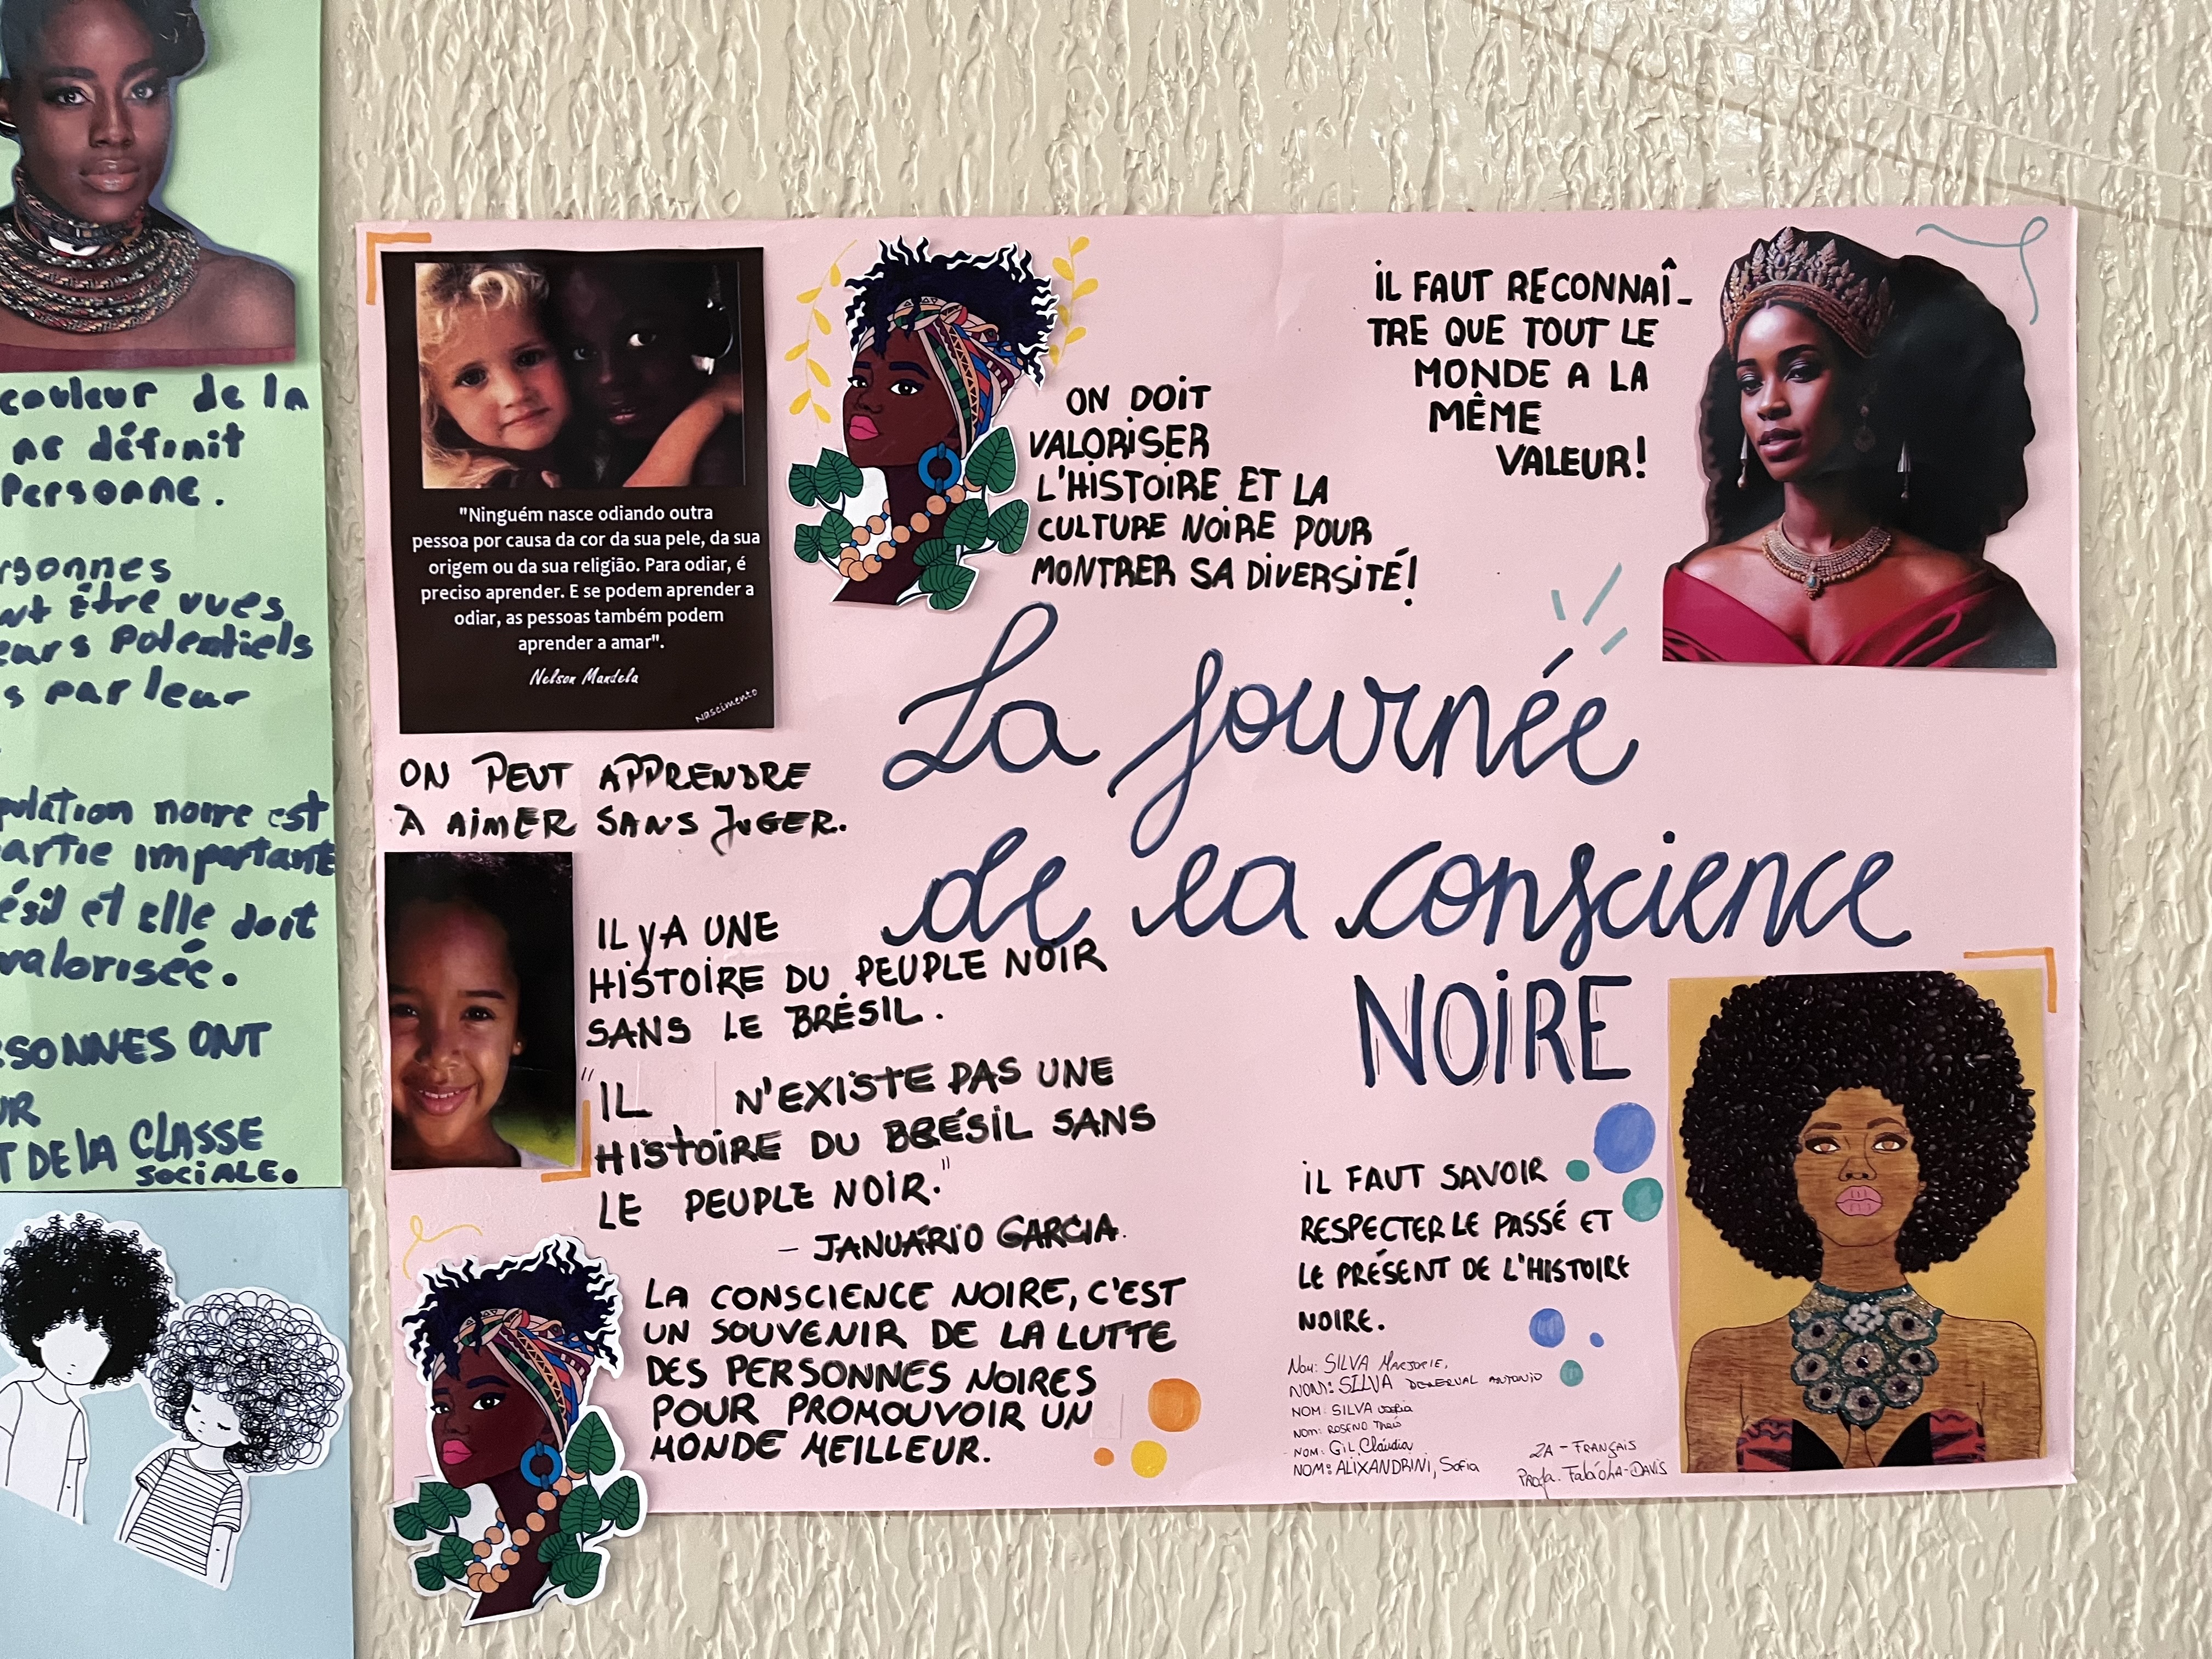 couleur de la
ne définit
Personne.
rsonnes
nt être vues
eurs Potentiels
s par leur
pulation noire est
artie important
ésil et elle doit
valorisée.
RSONNES ONT
UR
T DE LA CLASSE
SOCIALE.
"Ninguém nasce odiando outra
pessoa por causa da cor da sua pele, da sua
origem ou da sua religião. Para odiar, é
preciso aprender. E se podem aprender a
odiar, as pessoas também podem
aprender a amar".
Nelson Mandela
Nascimento
ON DOIT
VALORISER
L'HISTOIRE ET LA
CULTURE NOIRE POUR
MONTRER SA DIVERSITÉ!
IL FAUT RECONNAÎ-
TRE QUE TOUT LE
MONDE A LA
MÊME
VALEUR!
La Journée
de la conscience
NOIRE
ON PEUT APPRENDRE
À AIMER SANS JUGER.
IL Y A UNE
HISTOIRE DU PEUPLE NOIR
SANS LE BRÉSIL.
"IL N'EXISTE PAS UNE
HISTOIRE DU BRÉSIL SANS
LE PEUPLE NOIR."
- JANUÁRIO GARCIA.
LA CONSCIENCE NOIRE, C'EST
UN SOUVENIR DE LA LUTTE
DES PERSONNES NOIRES
POUR PROMOUVOIR UN
MONDE MEILLEUR.
IL FAUT SAVOIR
RESPECTER LE PASSÉ ET
LE PRÉSENT DE L'HISTOIRE
NOIRE.
NOM: SILVA MARJORIE,
NOM: SILVA DENERVAL ANTONIO
NOM: SILVA
NOM: ROSENO Thaís
NOM: GIL, Cláudia
NOM: ALIXANDRINI, Sofia
2A - FRANÇAIS
Profa. FABÍOLA - DAVIS